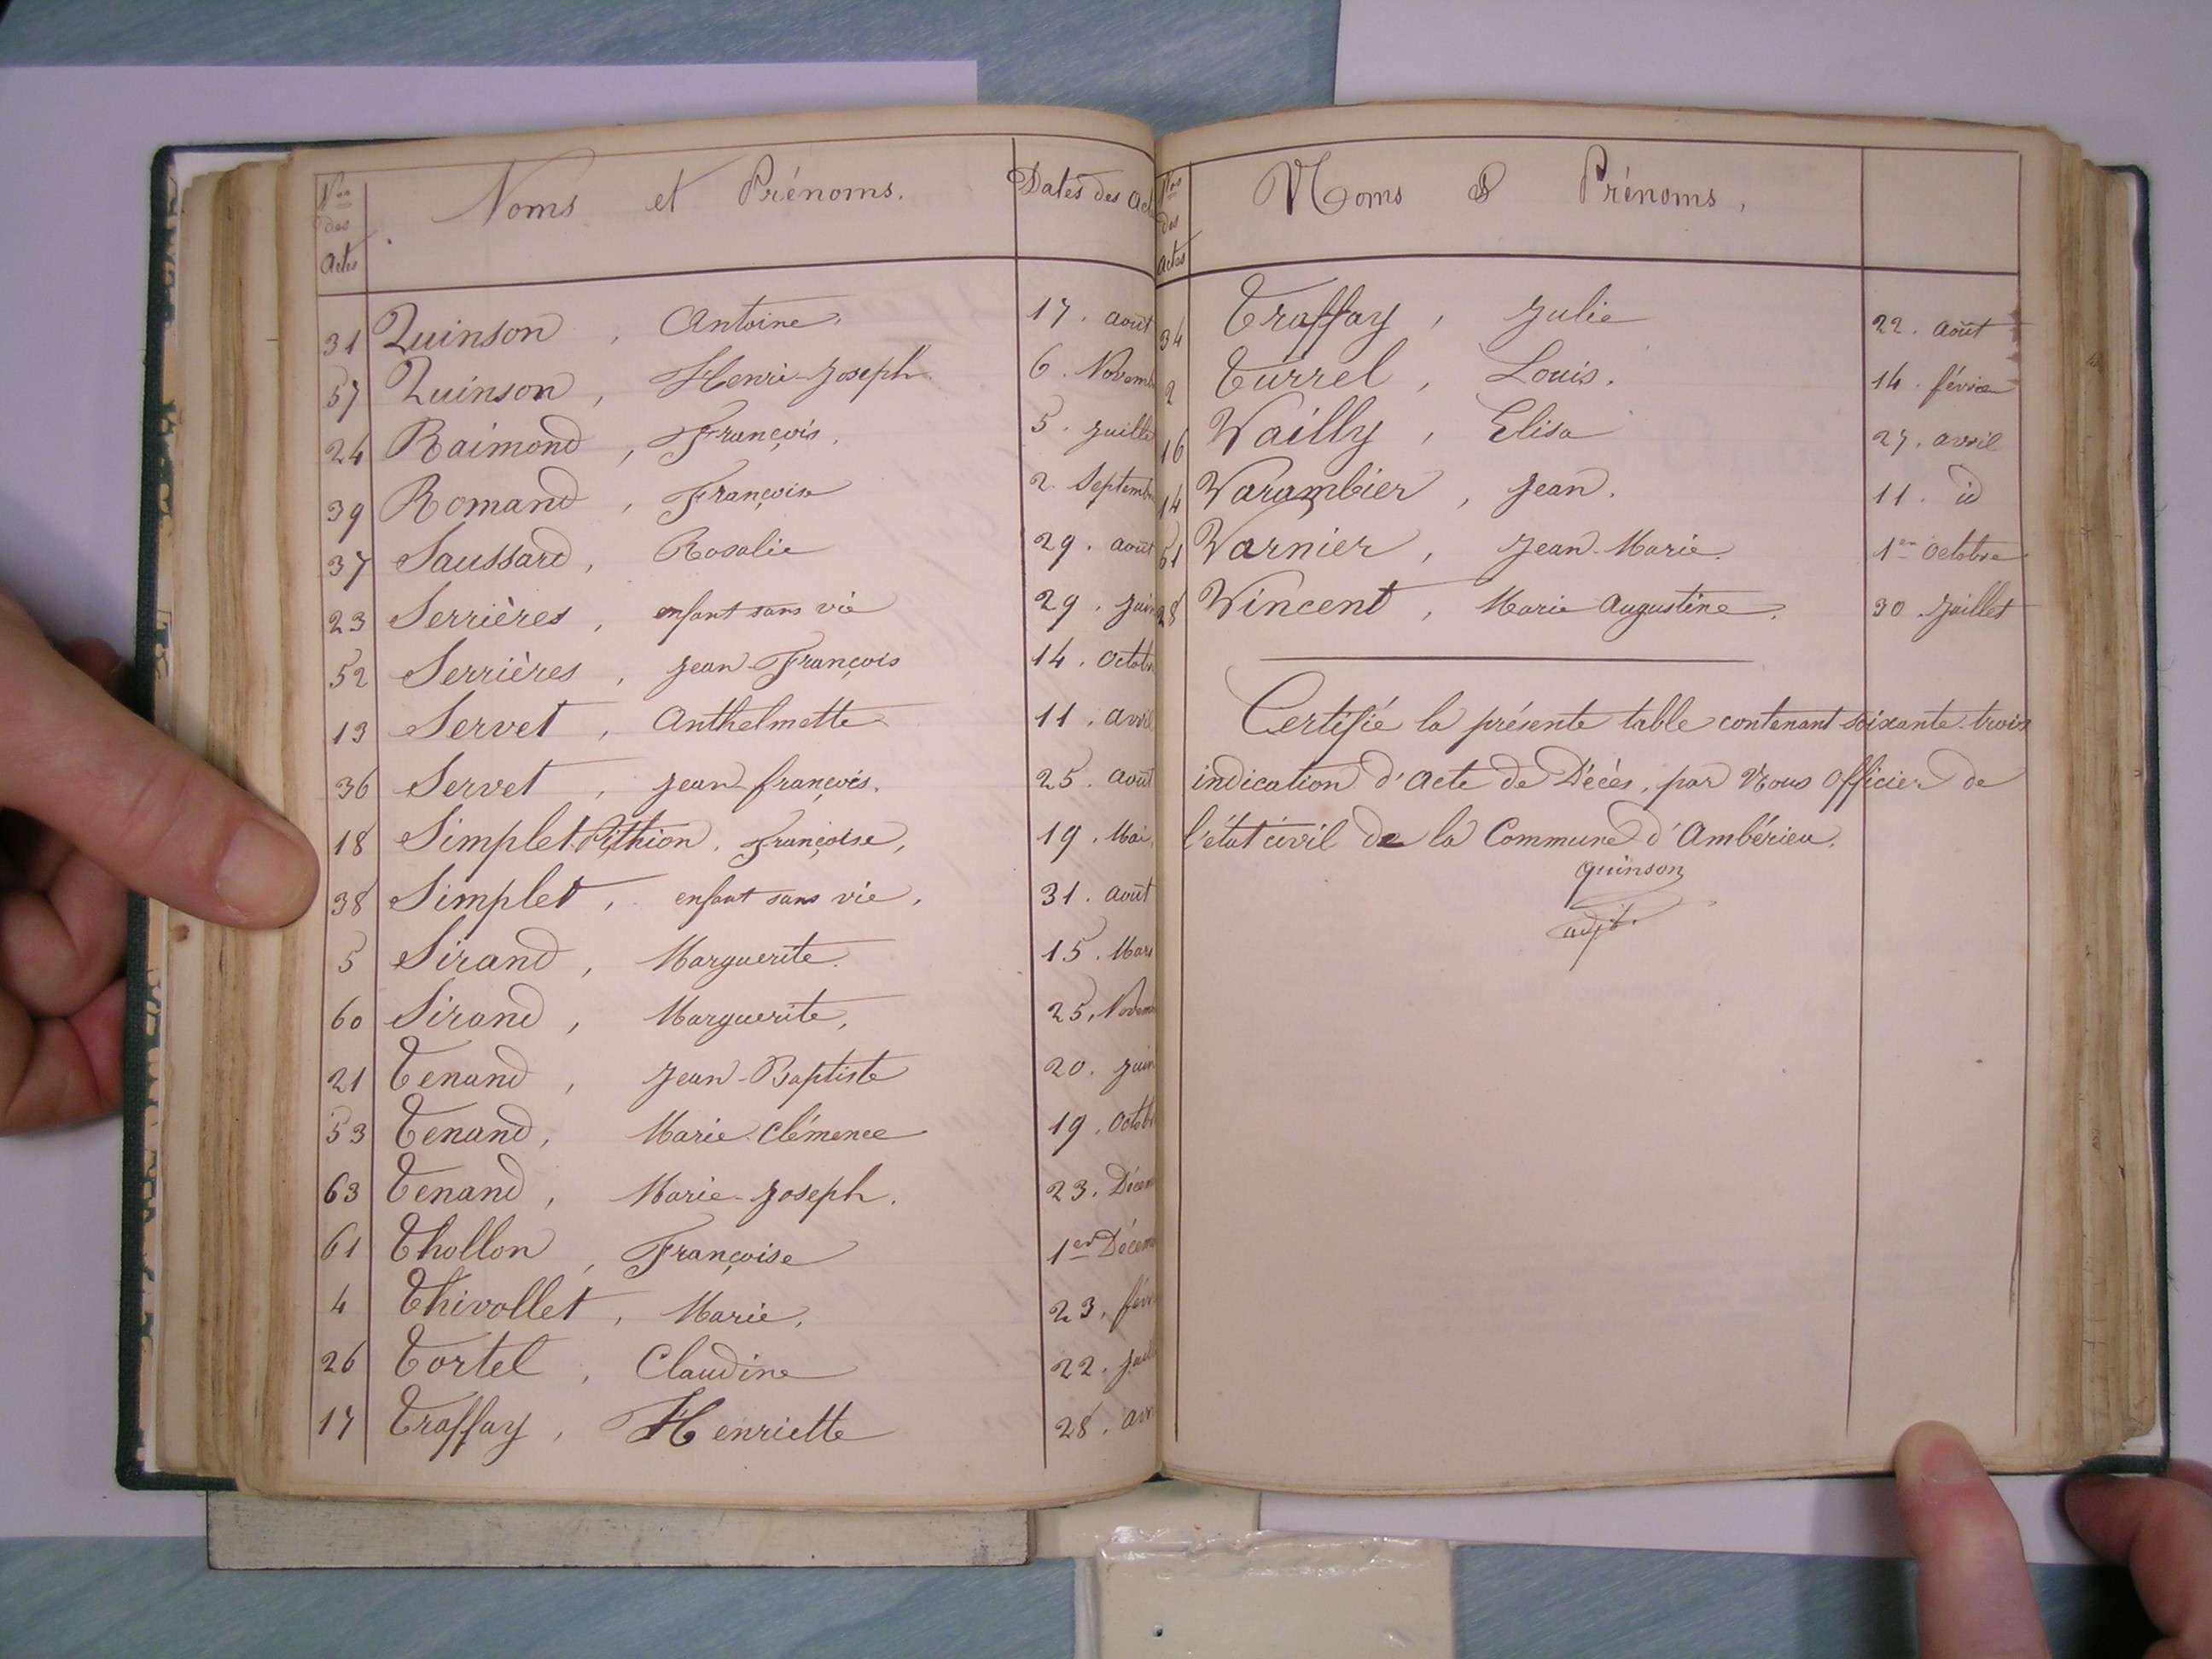 Nos des Actes Noms et Prénoms. Dates des Act
31 Quinson, Antoine. 17. août
57 Quinson, Henri-Joseph. 6. Novemb
24 Raimond, François. 5. juille
39 Romand, Françoise 2. Septemb
37 Saussard, Rosalie 29. août
23 Serrières, enfant sans vie 29. juin
52 Serrières, Jean-François 14. Octob
13 Servet, Anthelmette 11. avril
36 Servet, Jean françois. 25. août
18 Simplet Pithion. Françoise, 19. Mai
38 Simplet, enfant sans vie, 31. août
5 Sirand, Marguerite. 15. Mars
60 Sirand, Marguerite, 25. Novem
21 Tenand, Jean-Baptiste 20. juin
53 Tenand, Marie-Clémence 19. Octob
63 Tenand, Marie-Joseph. 23. Décem
61 Thollon, Françoise 1er Décem
4 Thivollet, Marie, 23. fév
26 Tortel, Claudine 22. juil
17 Traffay, Henriette 28. avr
Nos des Actes Noms & Prénoms,
34 Traffay, Julie 22. août
2 Turrel, Louis. 14. février
16 Wailly, Elisa 27. avril
14 Warambier, Jean. 11. id
51 Warnier, Jean-Marie. 1er Octobre
28 Wincent, Marie Augustine. 30. Juillet
Certifié la présente table contenant soixante-trois
indication d'acte de Décès, par Nous Officier de
l'état civil de la Commune d'Ambérieu.
quinson
adjt.